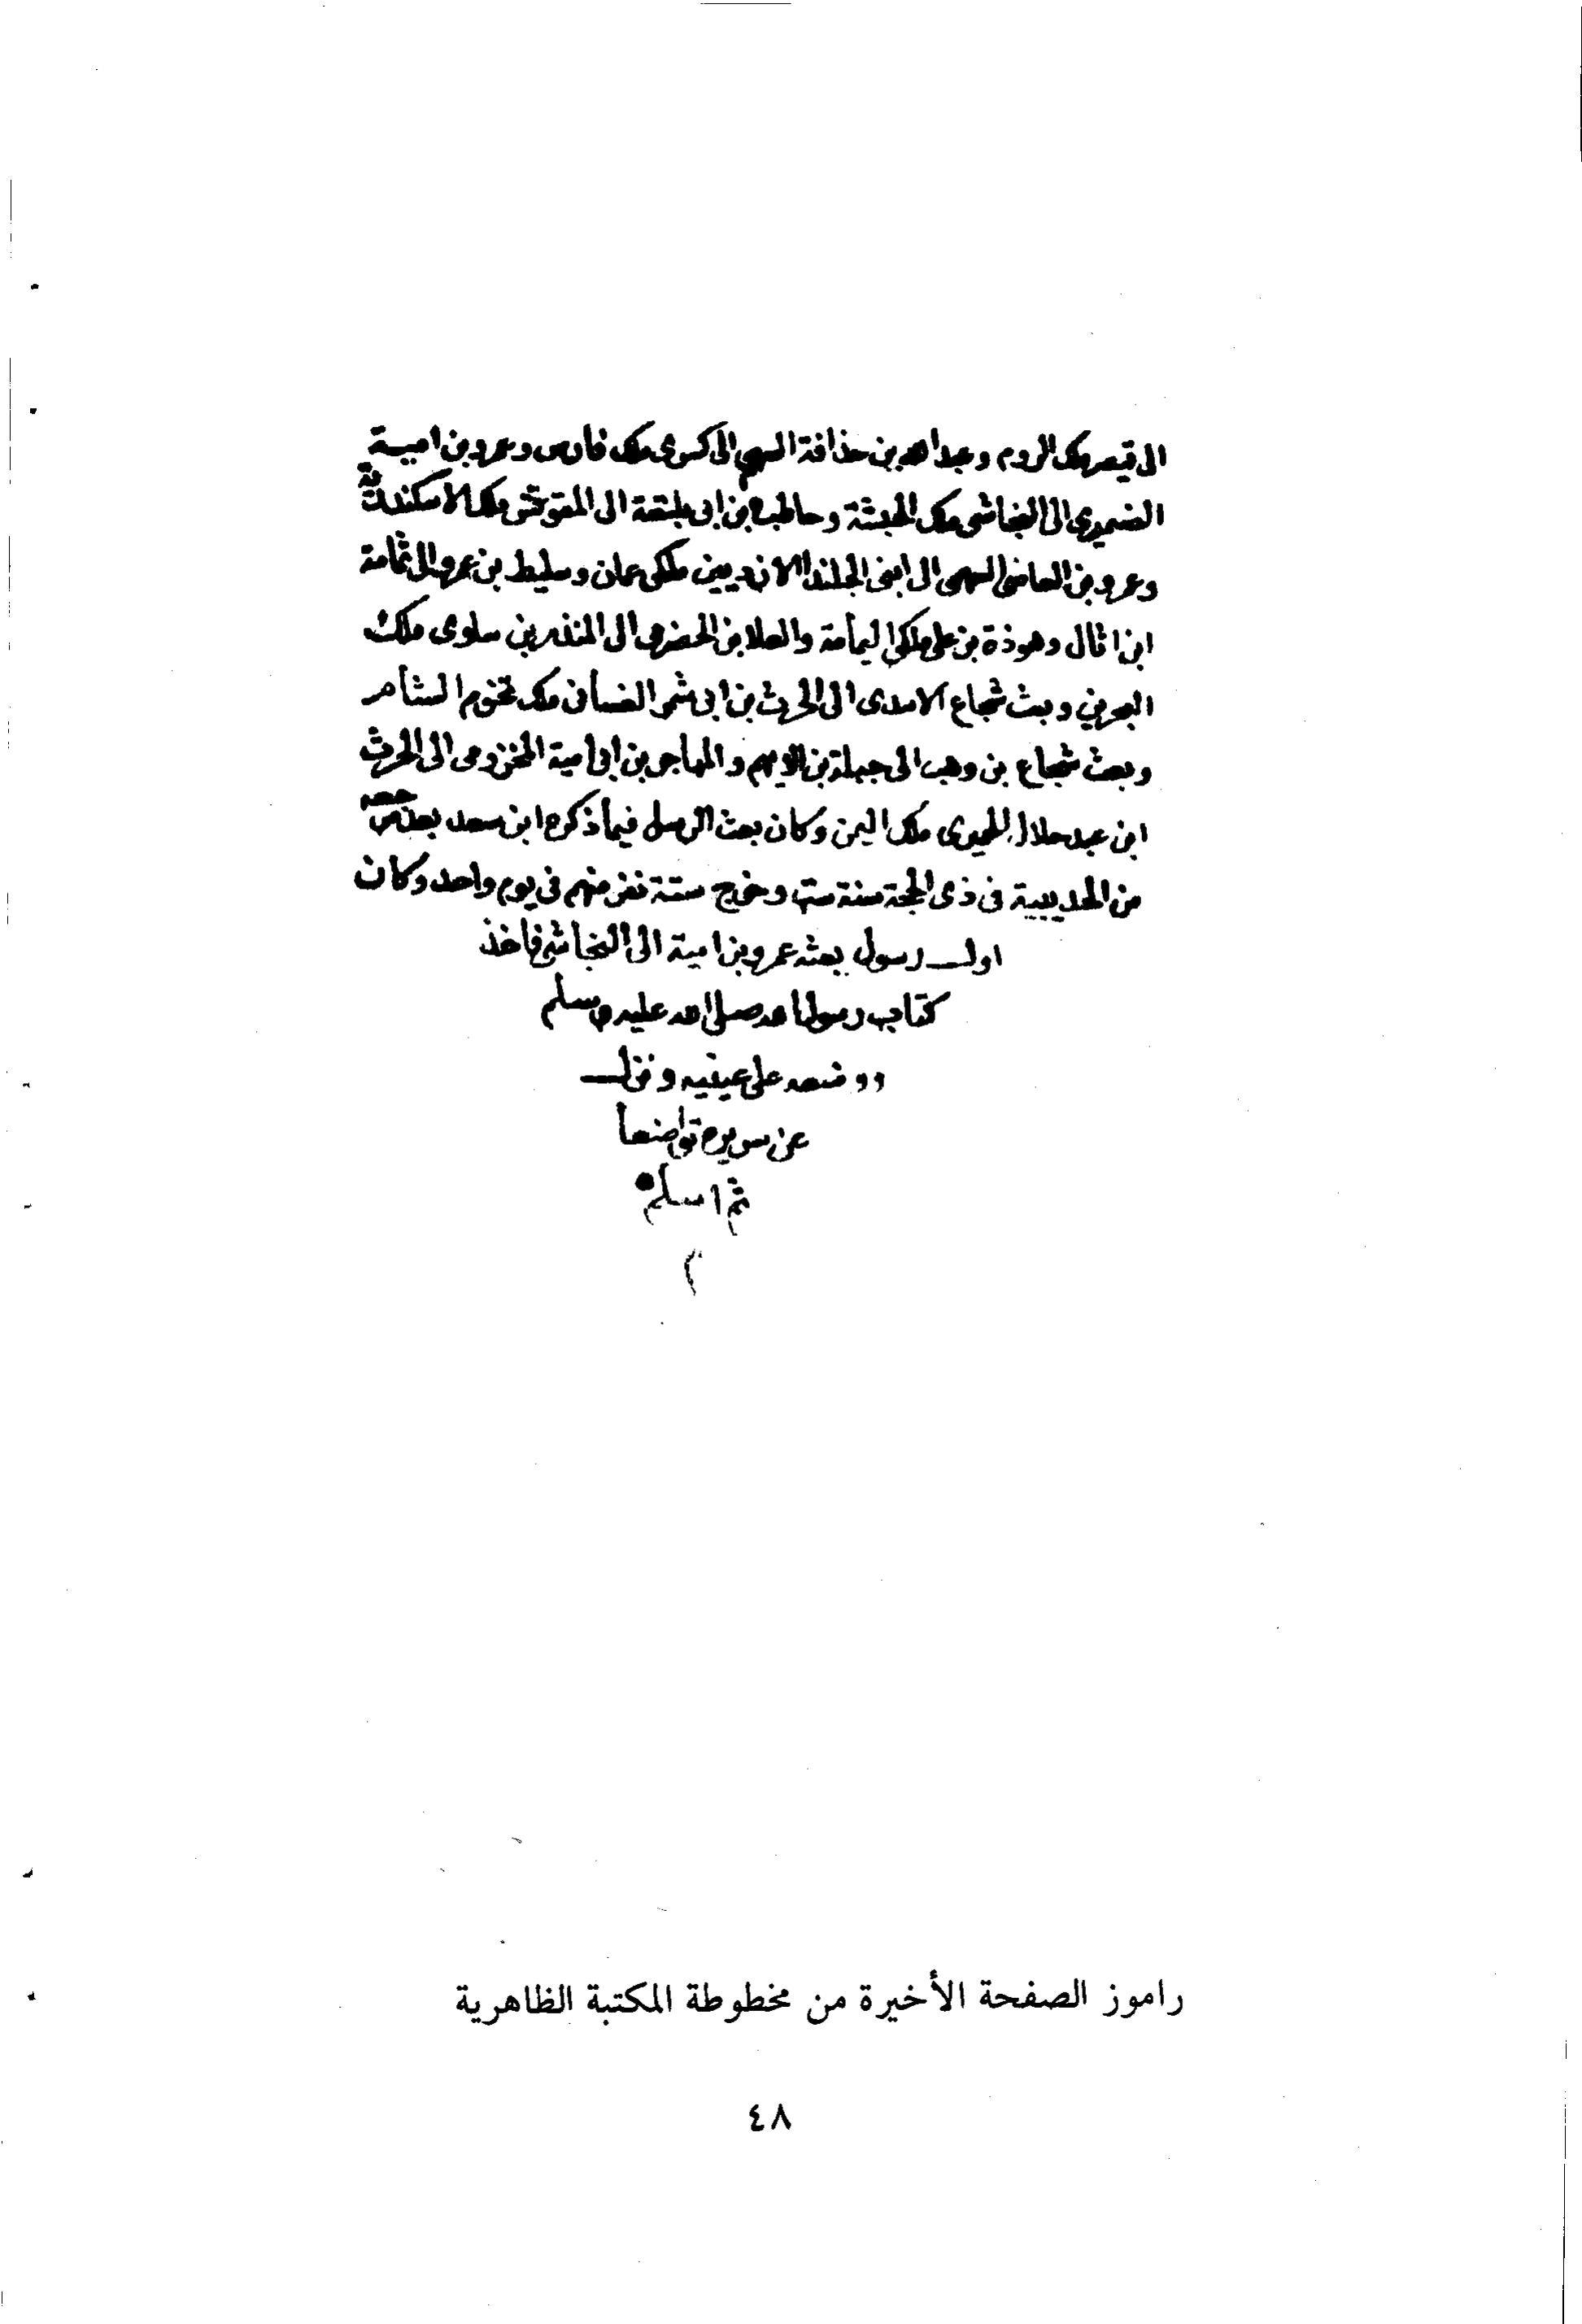 الى قيصر ملك الروم وعبد الله بن حذافة السهمي الى كسرى ملك فارس وعمرو بن امية
الضميرى الى النجاشى ملك الحبشة وحاطب بن ابى بلتعة الى المقوقس ملك الاسكندرية
وعمرو بن العاص السهمى الى ابنى الجلندا الازديين ملكى عمان وسليط بن عمرو الى ثمامة
ابن اثال وهوذة بن على ملكى اليمامة والعلا بن الحضرمى الى المنذر بن ساوى ملك
البحرين وبعث شجاع الاسدى الى الحرث بن ابى شمر الغسانى ملك تخوم الشام
وبعث شجاع بن وهب الى جبلة بن الايهم والمهاجر بن ابى امية المخزومى الى الحرث
ابن عبد حلال الحميرى ملك اليمن وكان بعث الرسل فيما ذكره ابن سعد بعد
من الحديبية فى ذى الحجة سنة ست وخرج ستة نفر منهم فى يوم واحد وكان
اول رسول بعثه عمرو بن امية الى النجاشى فاخذ
كتاب رسول الله صلى الله عليه وسلم
ووضعه على عينيه ونزل
عن سريره تواضعا
ثم اسلم
راموز الصفحة الأخيرة من مخطوطة المكتبة الظاهرية
٤٨